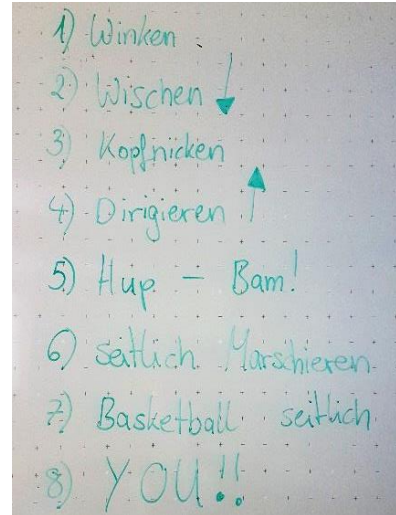 1) Winken
2) Wischen ↓
3) Kopfnicken
4) Dirigieren ↑
5) Hup - Bam!
6) seitlich Marschieren
7) Basketball seitlich
8) YOU!!